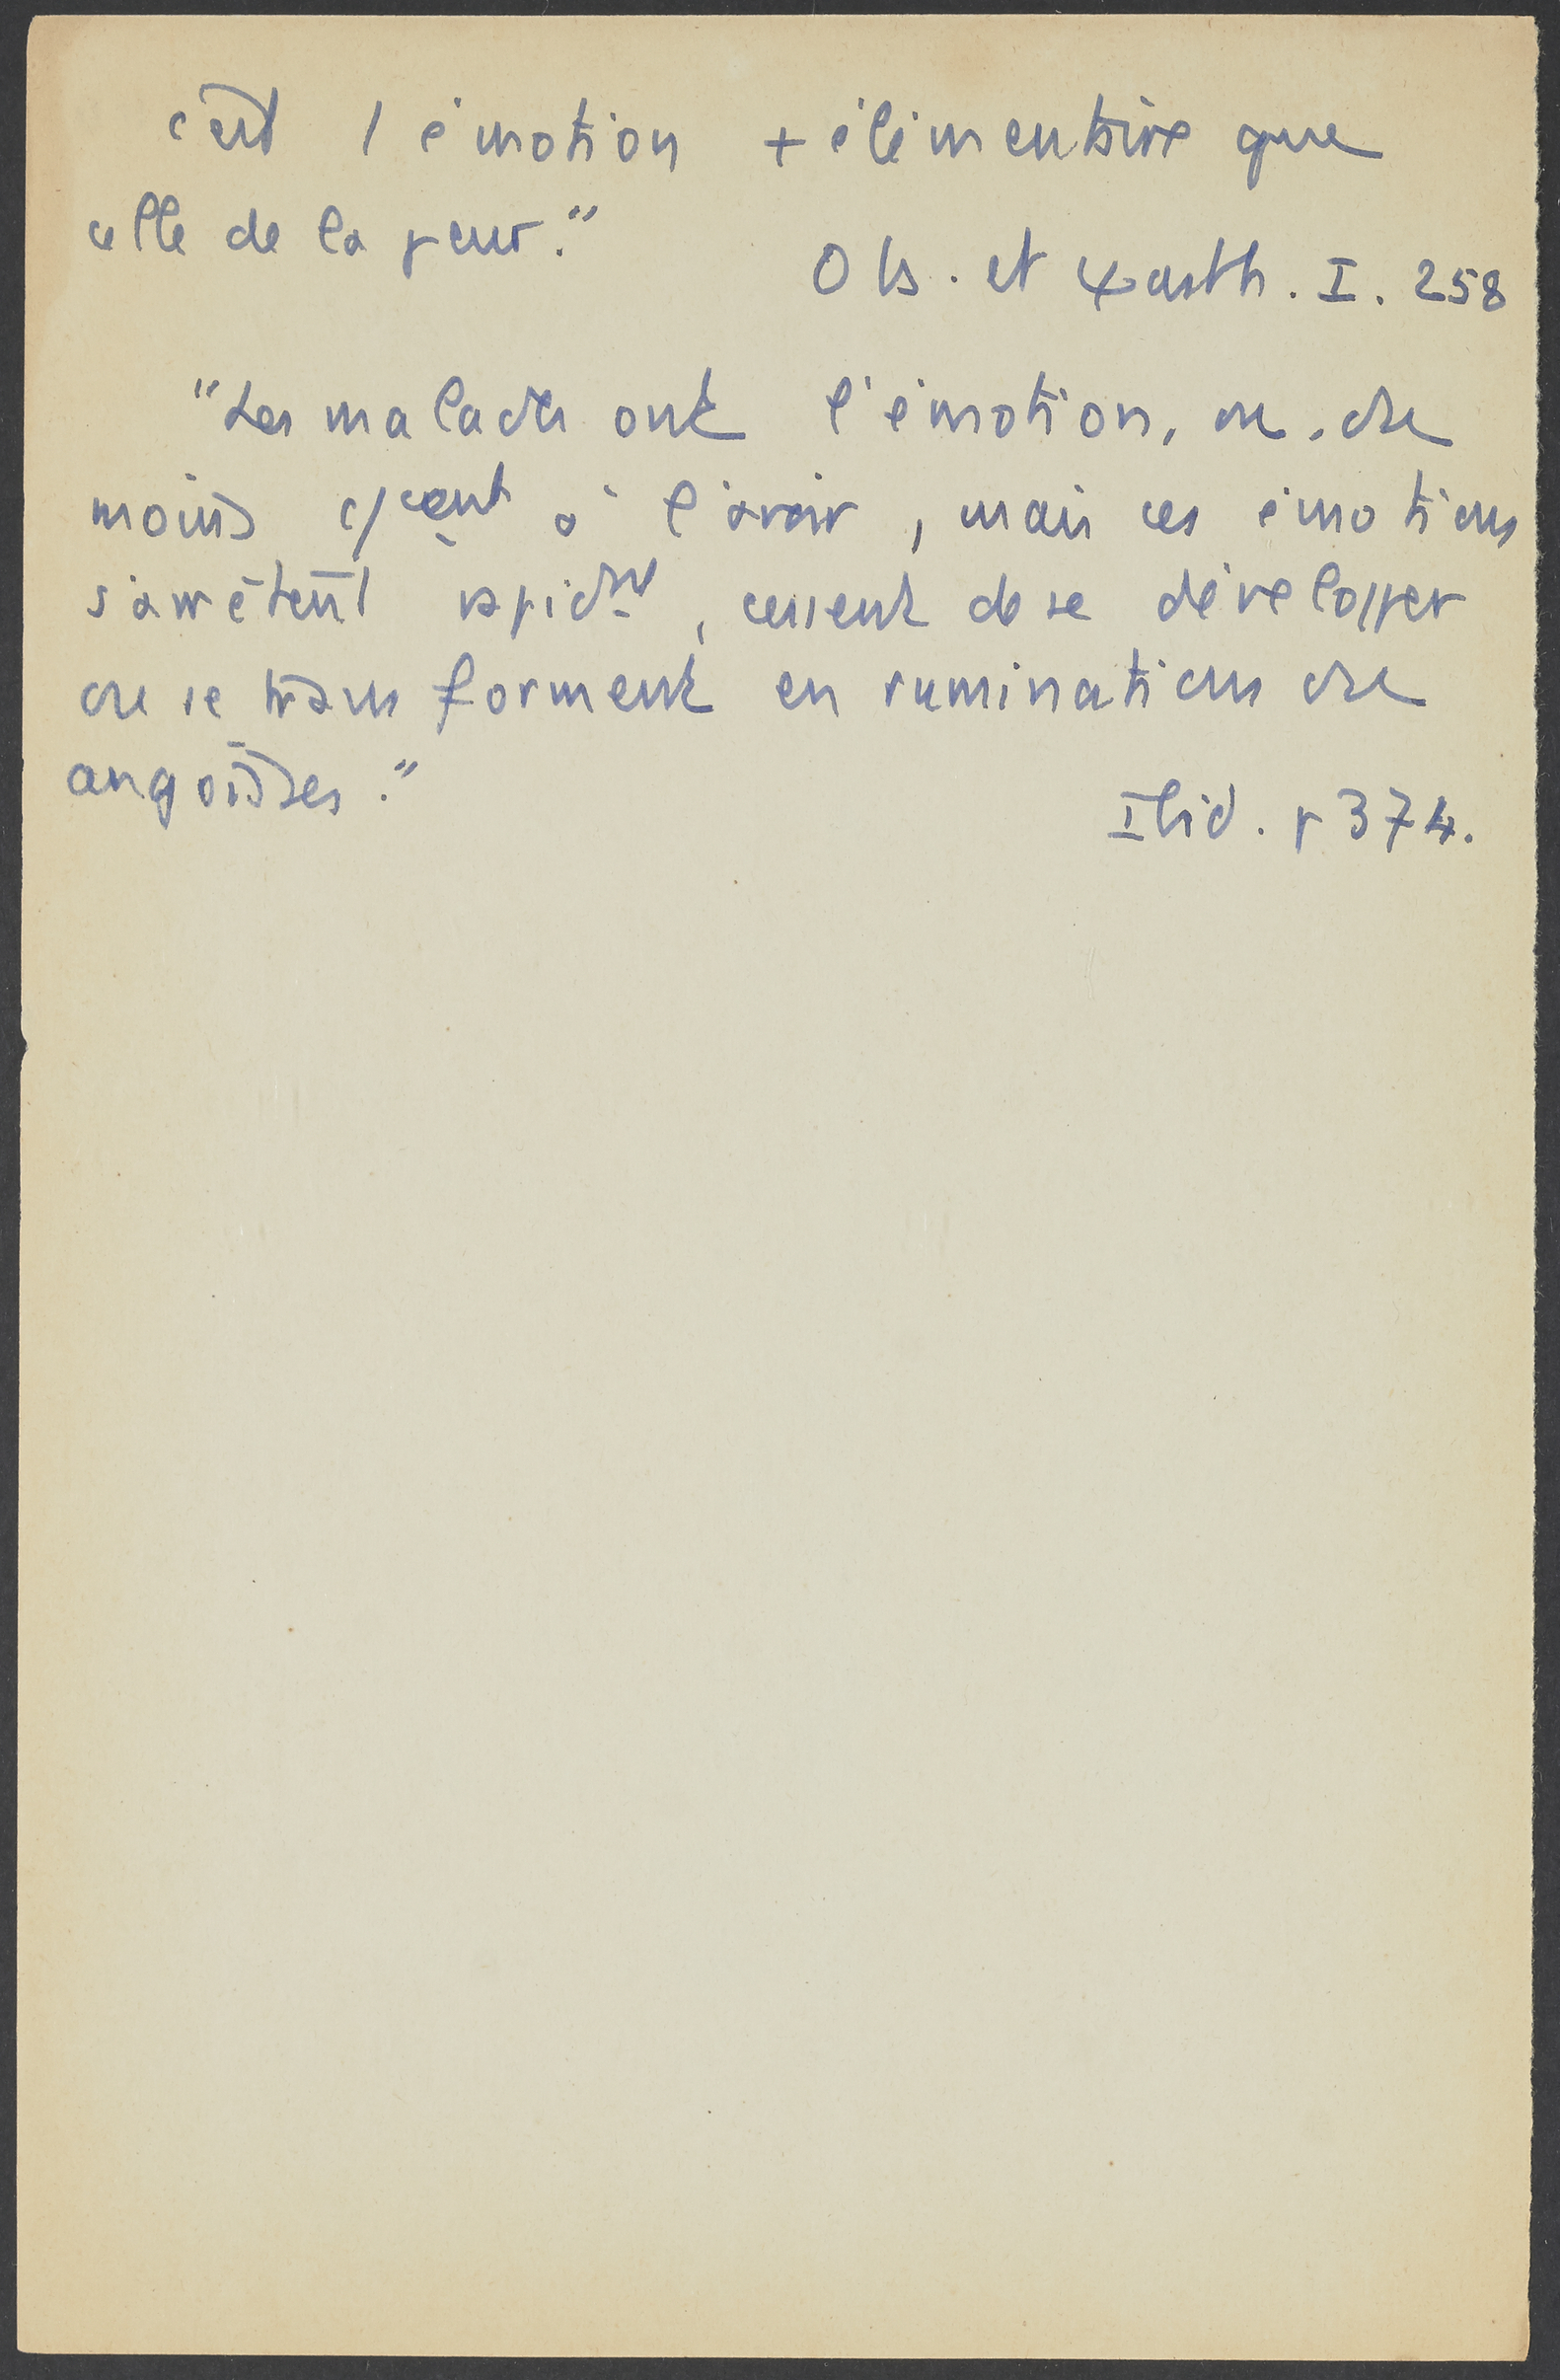 c'est 1 émotion + élémentaire que
celle de la peur."
Obs. et ψasth. I. 258
"Les malades ont l'émotion, ou du
moins c/cent à l'avoir, mais ces émotions
s'arrêtent rapidt, cessent de se développer
ou se transforment en ruminations ou
angoisses."
Ibid. p 374.